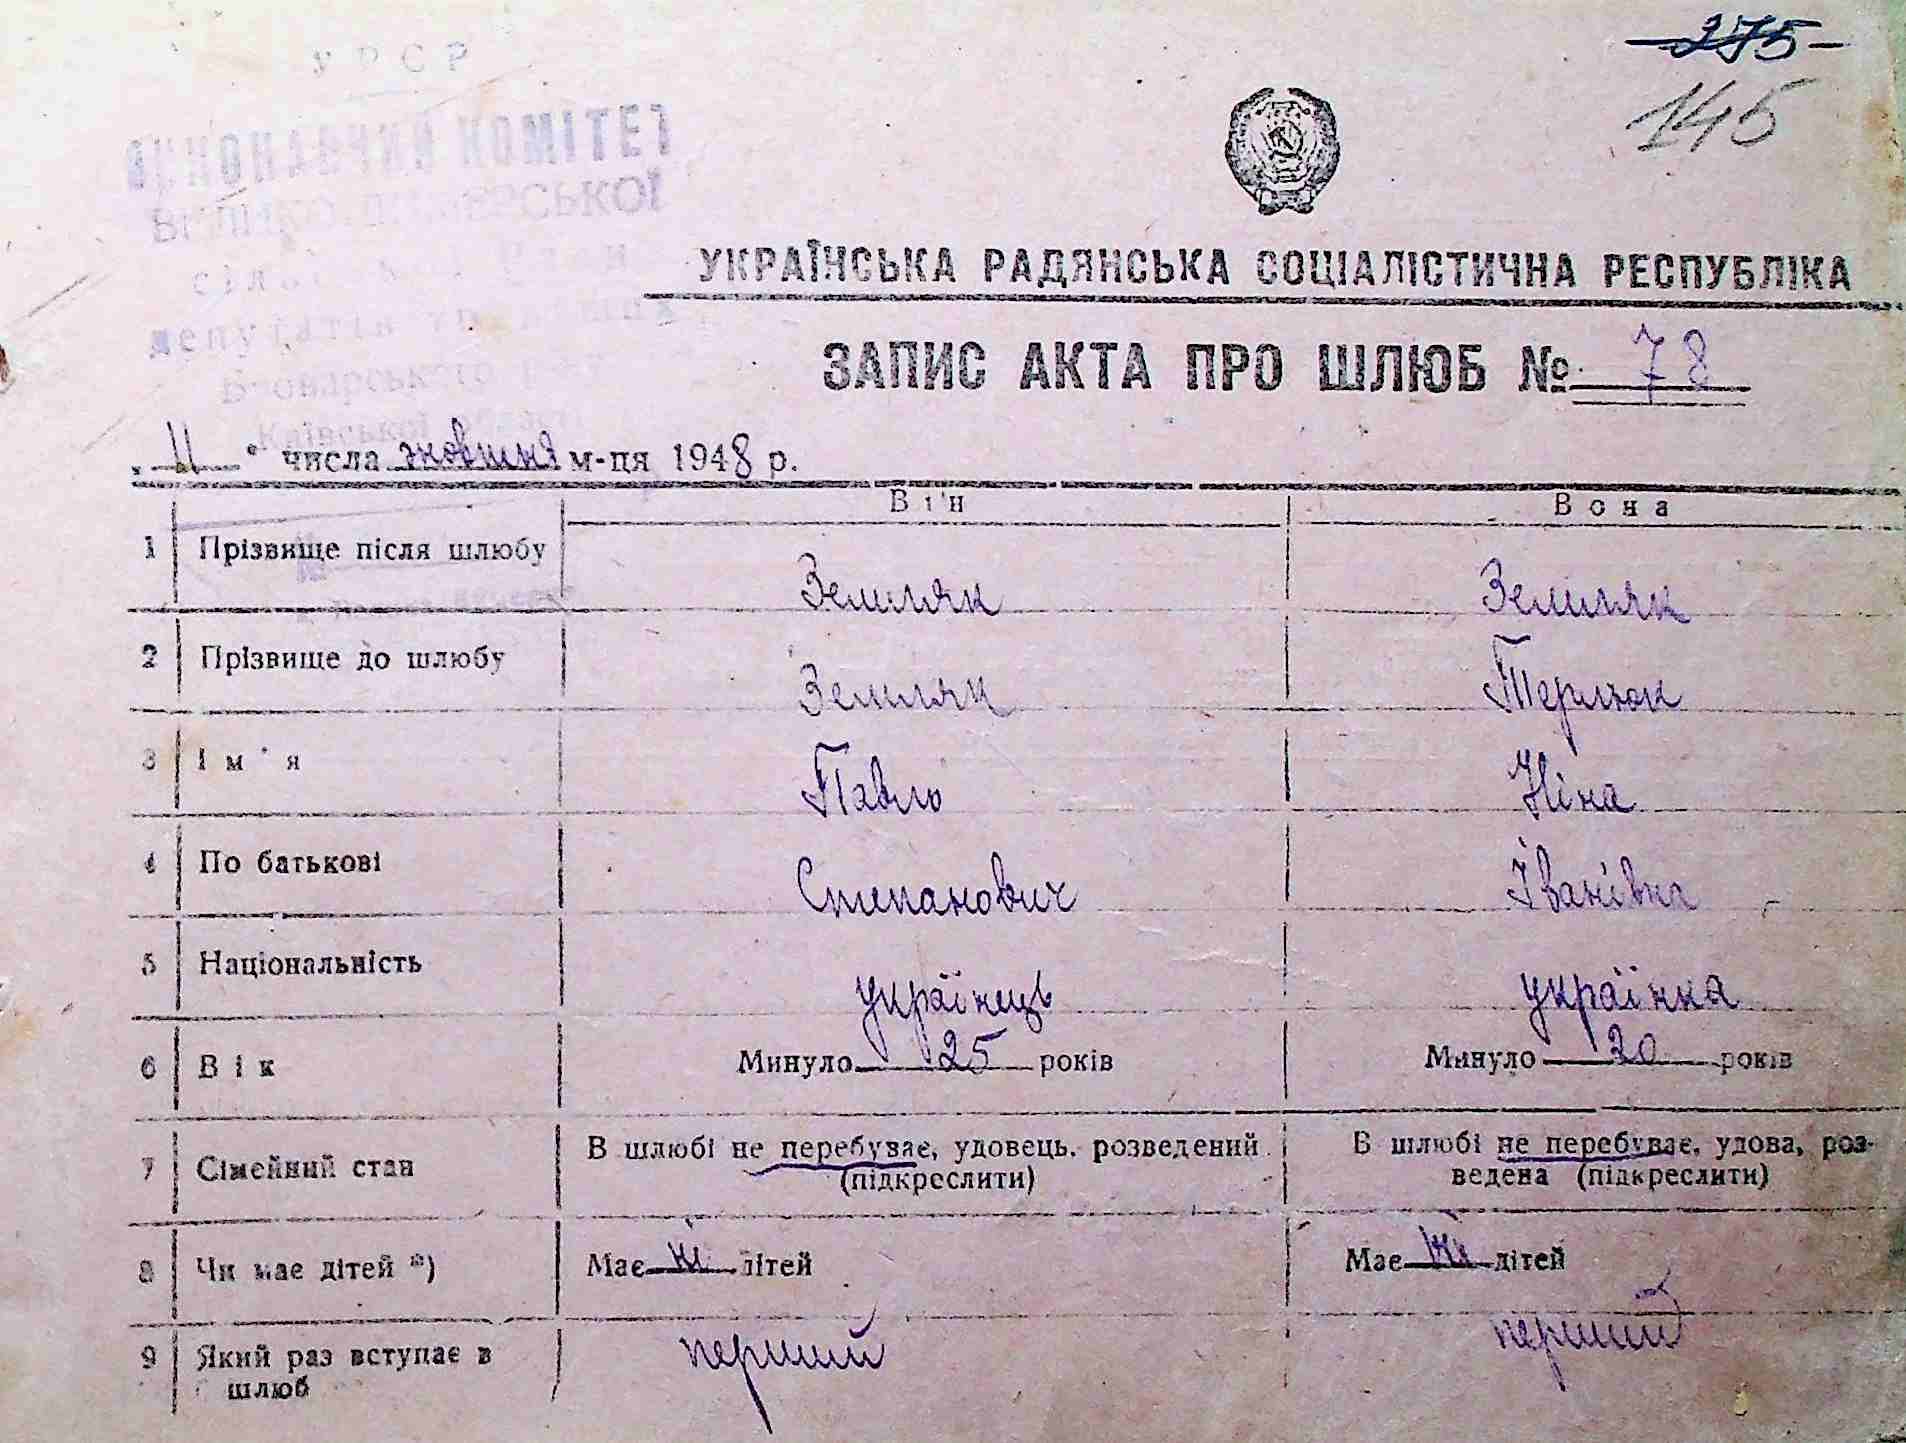 275
145
УРСР
ВИКОНАВЧИЙ КОМІТЕТ
депутатів
Броварського
Київської
УКРАЇНСЬКА РАДЯНСЬКА СОЦІАЛІСТИЧНА РЕСПУБЛІКА
ЗАПИС АКТА ПРО ШЛЮБ № 78
„11" числа жовтня м-ця 1948 р.
Він Вона
1 Прізвище після шлюбу Земляк Земляк
2 Прізвище до шлюбу Земляк Терлюк
3 Ім'я Павло Ніна
4 По батькові Степанович Іванівна
5 Національність українець українка
6 Вік Минуло 25 років Минуло 20 років
7 Сімейний стан В шлюбі не перебуває, удовець, розведений (підкреслити) В шлюбі не перебуває, удова, роз-
ведена (підкреслити)
8 Чи має дітей *) Має ні дітей Має ні дітей
9 Який раз вступає в перший перший
шлюб